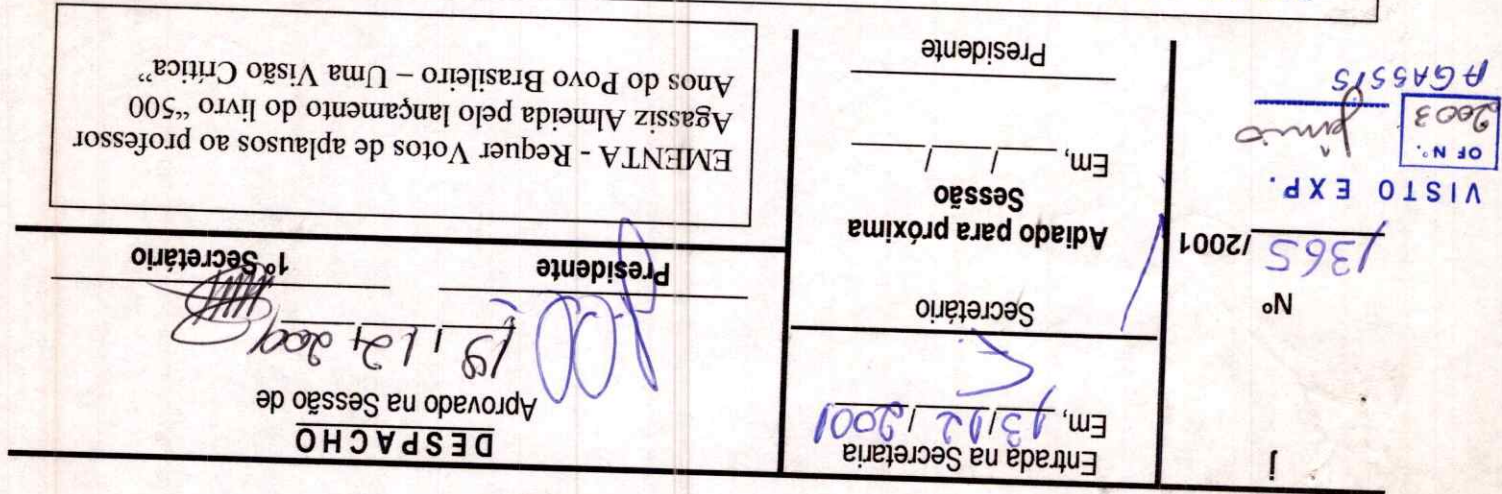 Nº
1365 /2001
VISTO EXP.
OF Nº.
2003
AGASSIS
Entrada na Secretaria
Em, 13/12/2001
Secretário
Adiado para próxima
Sessão
Em, ___/___/___
Presidente
DESPACHO
Aprovado na Sessão de
19/12/2001
Presidente
1º Secretário
EMENTA - Requer Votos de aplausos ao professor
Agassiz Almeida pelo lançamento do livro “500
Anos do Povo Brasileiro – Uma Visão Crítica”